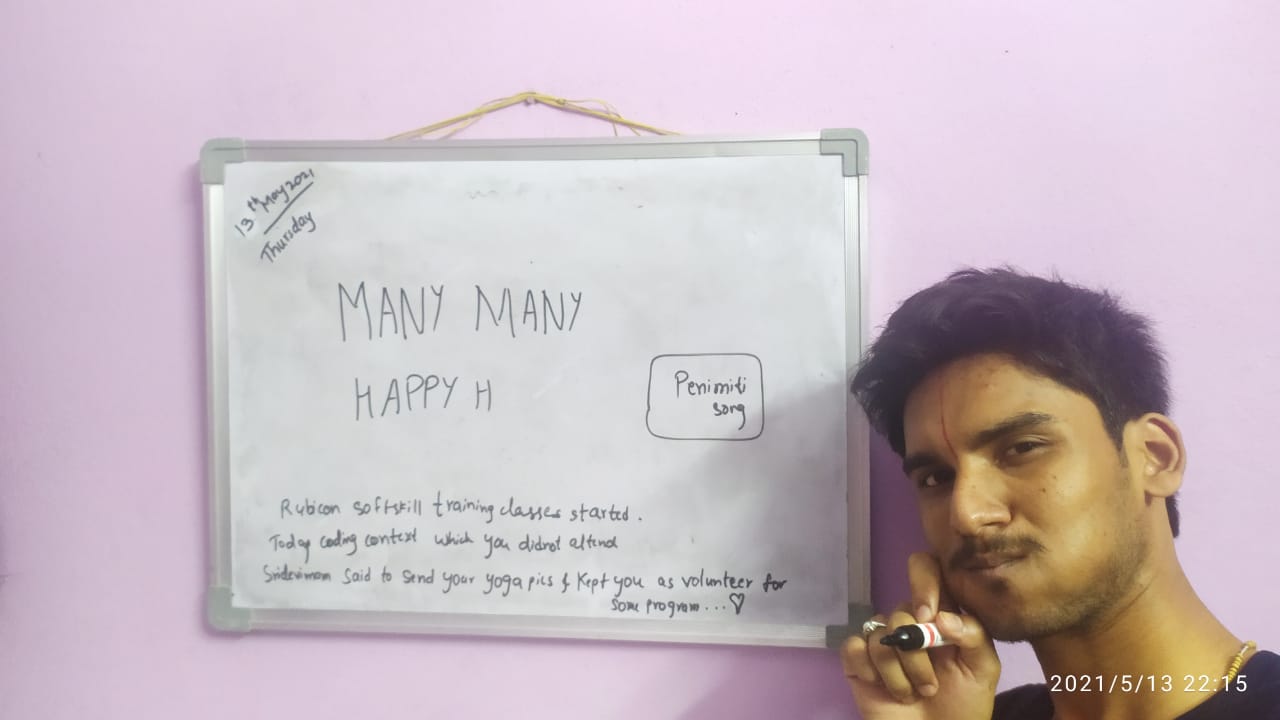 13th May 2021
Thursday
MANY MANY
HAPPY H
Penimiti
song
Rubicon softskill training classes started.
Today coding context which you didnot attend
Sridevimam said to send your yoga pics & kept you as volunteer for
some program...♡
2021/5/13 22:15